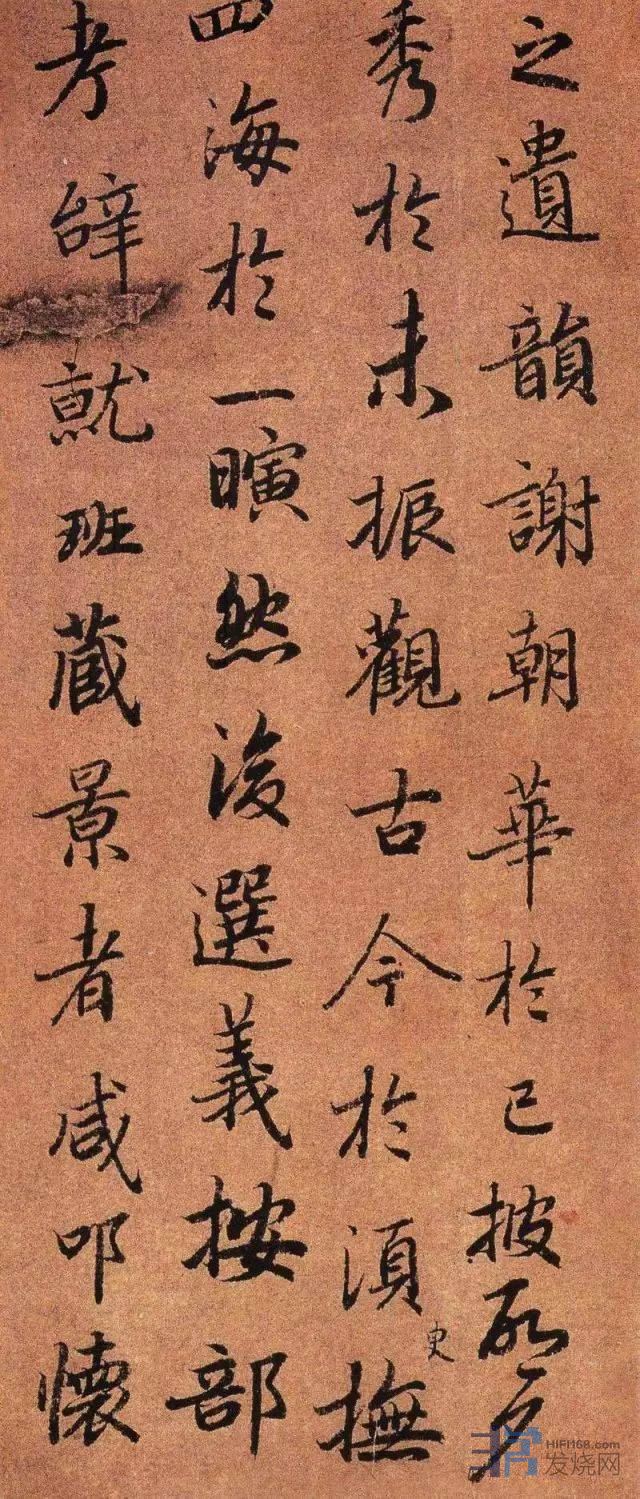 之遺韻謝朝華於已披啓夕
秀於未振觀古今於須臾撫
四海於一瞚然後選義按部
考辝就班蔵景者咸叩懷
HIFI168.com
发烧网